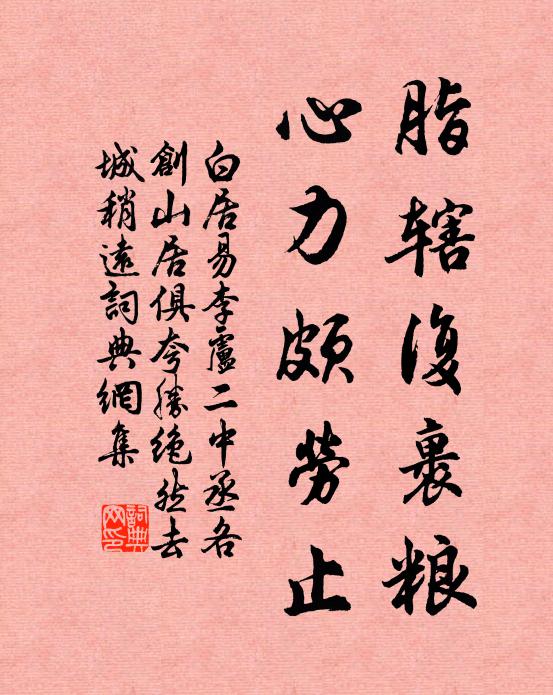 脂辖復裹粮
心力颇勞止
白居易李盧二中丞各
創山居俱夸勝絕然去
城稍遠詞典網集
詞典网印